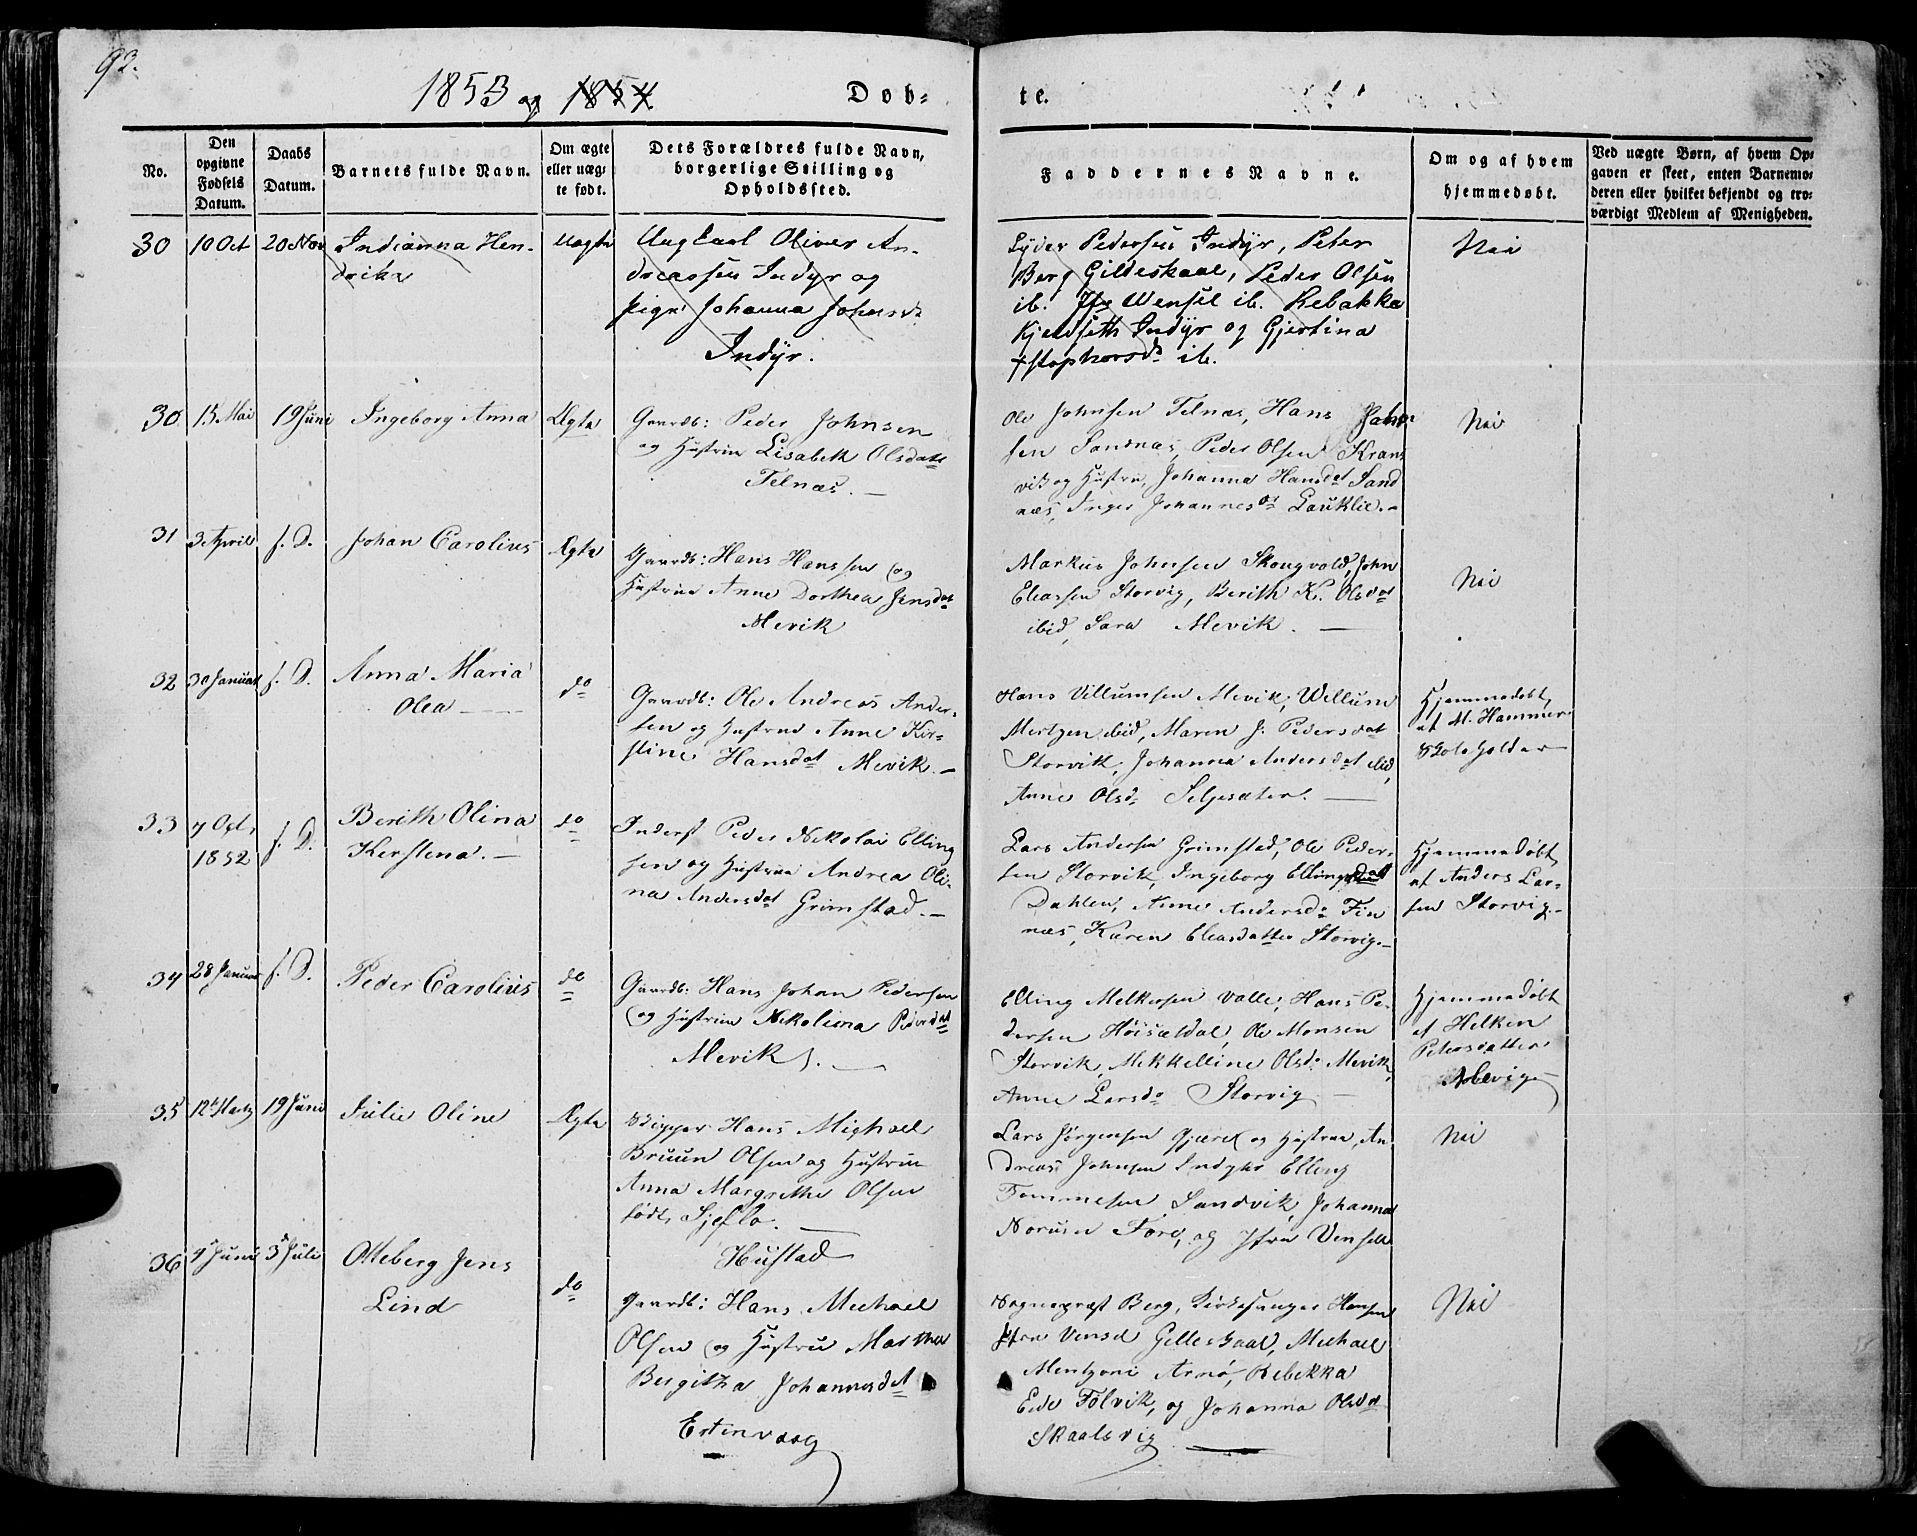 92.
1853 og 1854
Døb-
te.
No.
Den
opgivne
Fødsels
Datum.
Daabs
Datum.
Barnets fulde Navn.
Om ægte
eller uæg-
te født.
Dets Forældres fulde Navn,
borgerlige Stilling og
Opholdssted.
Faddernes Navne.
Om og af hvem
hjemmedøbt.
Ved uægte Børn, af hvem Op-
gaven er skeet, enten Barnemo-
deren eller hvilket bekjendt og tro-
værdigt Medlem af Menigheden.
30 10 Oct 20 Nov Indianna Hen-
drika
Uægte
Ungkarl Oliver An-
dreassen Indyr og
pige Johanna Johansd
Indyr.
Lyder Pedersen Indyr, Peter
Berg Gildeskaal, Peder Olsen
ib. Jfr Wensel ib. Rebakka
Kjeldseth Indyr og Gjertina
ib.
Nei
30 15 Mai 19 Juni Ingeborg Anna Ægte
Gaardb: Peder Johnsen
og Hustru Lisabeth Olsdatt
Telnæs. —
Ole Johnsen Telnæs, Hans Johan-
sen Sandnæs, Peder Olsen Krans
vik og Hustru, Johanna Hansdat Sand
næs, Inger Johannesd Lauklie. —
Nei
31 3 April s. D. Johan Carolius Ægte
Gaardb: Hans Hanssen og
Hustrue Anne Dorthea Jensdat
Mevik
Markus Johnsen Skougvold, John
Eleassen Storvig, Berith K. Olsdat
ibid, Sara Mevik. —
Nei
32 30 Januar s. D. Anna Maria
Olea —
do
Gaardb: Ole Andreas Ander-
sen og Hustrue Anne Kir-
stine Hansdat Mevik. —
Hans Villumsen Mevik, Willum
Mertzen ibid, Maren J. Pedersdat
Storvik, Johanna Andersdat ibid,
Anne Olsd Selsæter. —
Hjemmedøbt
af M. Hammer
Skoleholder
33 7 Oct,
1852
s. D.
Berith Olina
Kerstena. —
do
Inderst Peder Nikolai Elling
sen og Hustrue Andrea Oli-
na Andersdat Grimstad. —
Lars Andersen Grimstad, Ole Peder-
sen Storvik, Ingeborg Ellingsdatt
Dahlen, Anne Andersd Fin
næs, Karen Eleasdatter Storvig. —
Hjemmedøbt
af Anders Lar-
sen Storvig. —
34 28 Januar s. D. Peder Carolius do
Gaardb: Hans Johan Pedersen
og Hustrue Nikolina Pedersdat
Mevik. —
Elling Melkersen Valle, Hans Pe-
dersen Høisætdal, Ole Monsen
Storvik, Mekkelline Olsd Mevik,
Anne Larsd Storvig —
Hjemmedøbt
af Helken
Petersdatter
35 12 Martz 19 Juni Julie Oline Ægte
Skipper Hans Michael
Bruun Olsen og Hustrue
Anna Margrethe Olsen
født Sjeflo. —
Hustad
Lars Jørgensen Gjæret og Hustrue, An-
dreas Johnsen Indyhr Elling
Tommesen Sandvik, Johanna
Norum Fore, og Jfru Vensell
Nei
36 4 Juni 3 Juli Otteberg Jens
Lind
do
Gaardb: Hans Michael
Olsen og Hustru Martha
Bergitha Johannesdat
Estenvaag
Sognepræst Berg, Kirkesanger Hansen
Jfru Vensel Gilleskaal, Michael
Mentzoni Arnø, Rebekka
Eide Følvik, og Johanna Olsdat
Skaalsvig
Nei